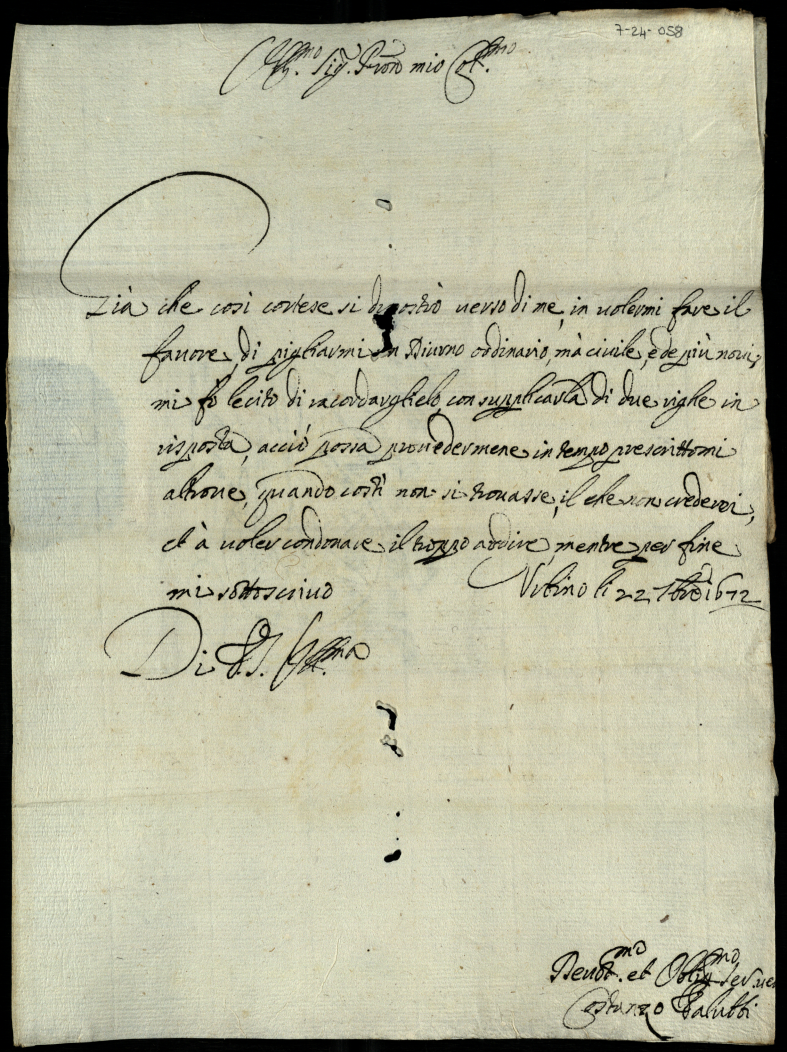 7-24-058
Ill.mo Sig.r Pron mio Col.mo
Già che così cortese si dimostrò verso di me, in volermi fare il
favore, di pigliarmi un Diurno ordinario, mà civile, e de più novi,
mi fò lecito di racordarglielo, con supplicarla di due righe in
risposta, acciò possa provedermene in tempo prescrittomi
altrove, quando costì non si trovasse, il che non crederei,
et à voler condonare il troppo ardire, mentre per fine
mi sottoscrivo
Urbino li 22 7bre 1672
Di V.S. Ill.ma
Devot.mo et Oblig.mo Ser.
Costanzo